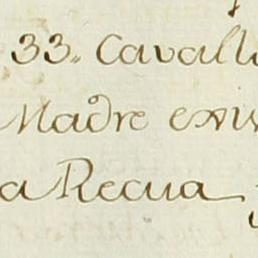 33. Cavall
Madre exis
a Recua